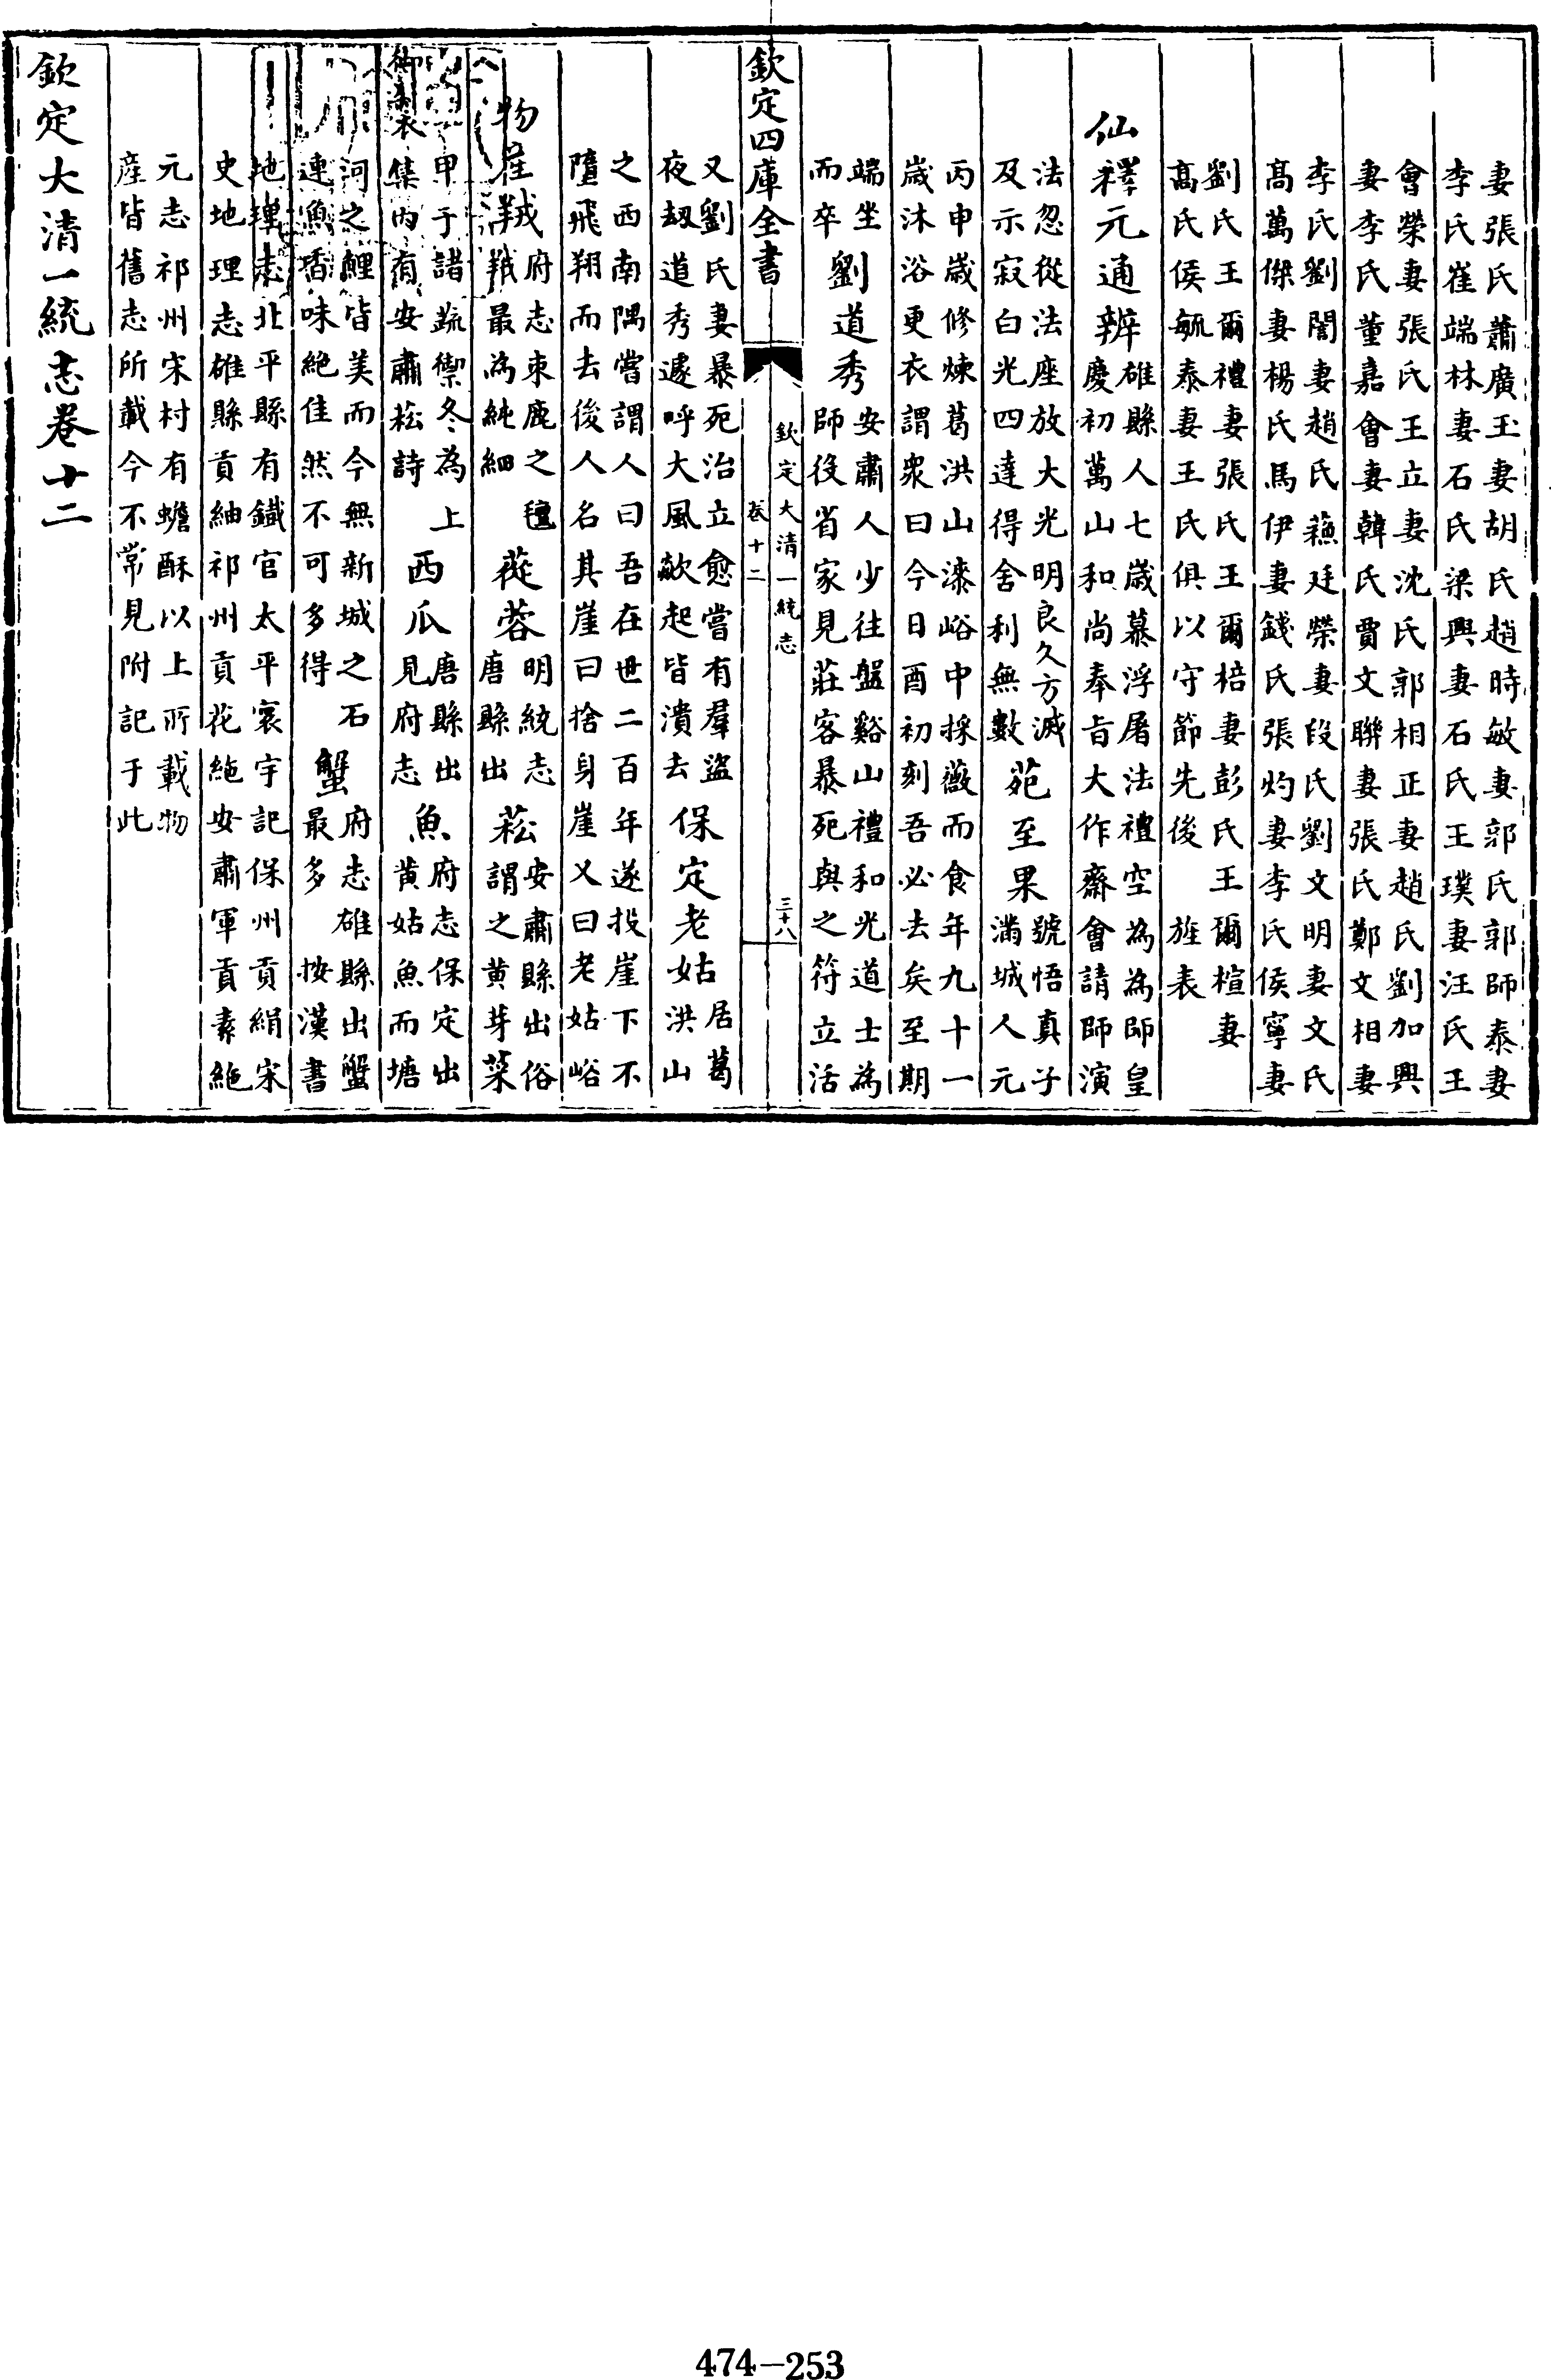 妻張氏蕭廣玉妻胡氏趙時敏妻郭氏郭師泰妻
李氏崔端林妻石氏梁興妻石氏王璞妻汪氏王
會榮妻張氏王立妻沈氏郭相正妻趙氏劉加興
妻李氏董嘉會妻韓氏賈文聯妻張氏鄭文相妻
李氏劉闇妻趙氏蘓廷榮妻段氏劉文明妻文氏
髙萬傑妻楊氏馬伊妻錢氏張灼妻李氏侯寧妻
劉氏王爾禮妻張氏王爾棓妻彭氏王爾楦妻
髙氏侯毓泰妻王氏俱以守節先後旌表
仙釋元通辨
雄縣人七歲慕浮屠法禮空為為師皇
慶初萬山和尚奉旨大作齋會請師演
法忽從法座放大光明良久方滅
及示寂白光四達得舍利無數
苑至果
號悟真子
滿城人元
丙申歲修煉葛洪山漆峪中採薇而食年九十一
歲沐浴更衣謂衆曰今日酉初刻吾必去矣至期
端坐
而卒
劉道秀
安肅人少往盤谿山禮和光道士為
師後省家見莊客暴死與之符立活
欽定四庫全書
欽定大清一統志
卷十二
三十八
又劉氏妻暴死治立愈嘗有羣盜
夜刼道秀遽呼大風歘起皆潰去
保定老姑
居葛
洪山
之西南隅嘗謂人曰吾在世二百年遂投崖下不
墮飛翔而去後人名其崖曰捨身崖又曰老姑峪
物産
羢羢
府志束鹿之氊
最為純細
蓯蓉
明統志
唐縣出
菘
安肅縣出俗
謂之黄芽菜
甲于諸蔬禦冬為上
御製集内有安肅菘詩
西瓜
唐縣出
見府志
魚
府志保定出
黄姑魚而塘
河之鯉皆美而今無新城之石
連魚香味絶佳然不可多得
蟹
府志雄縣出蟹
最多
按漢書
地理志北平縣有鐡官太平寰宇記保州貢絹宋
史地理志雄縣貢紬祁州貢花絁安肅軍貢素絁
元志祁州宋村有蟾酥以上所載物
産皆舊志所載今不常見附記于此
欽定大清一統志卷十二
474-253